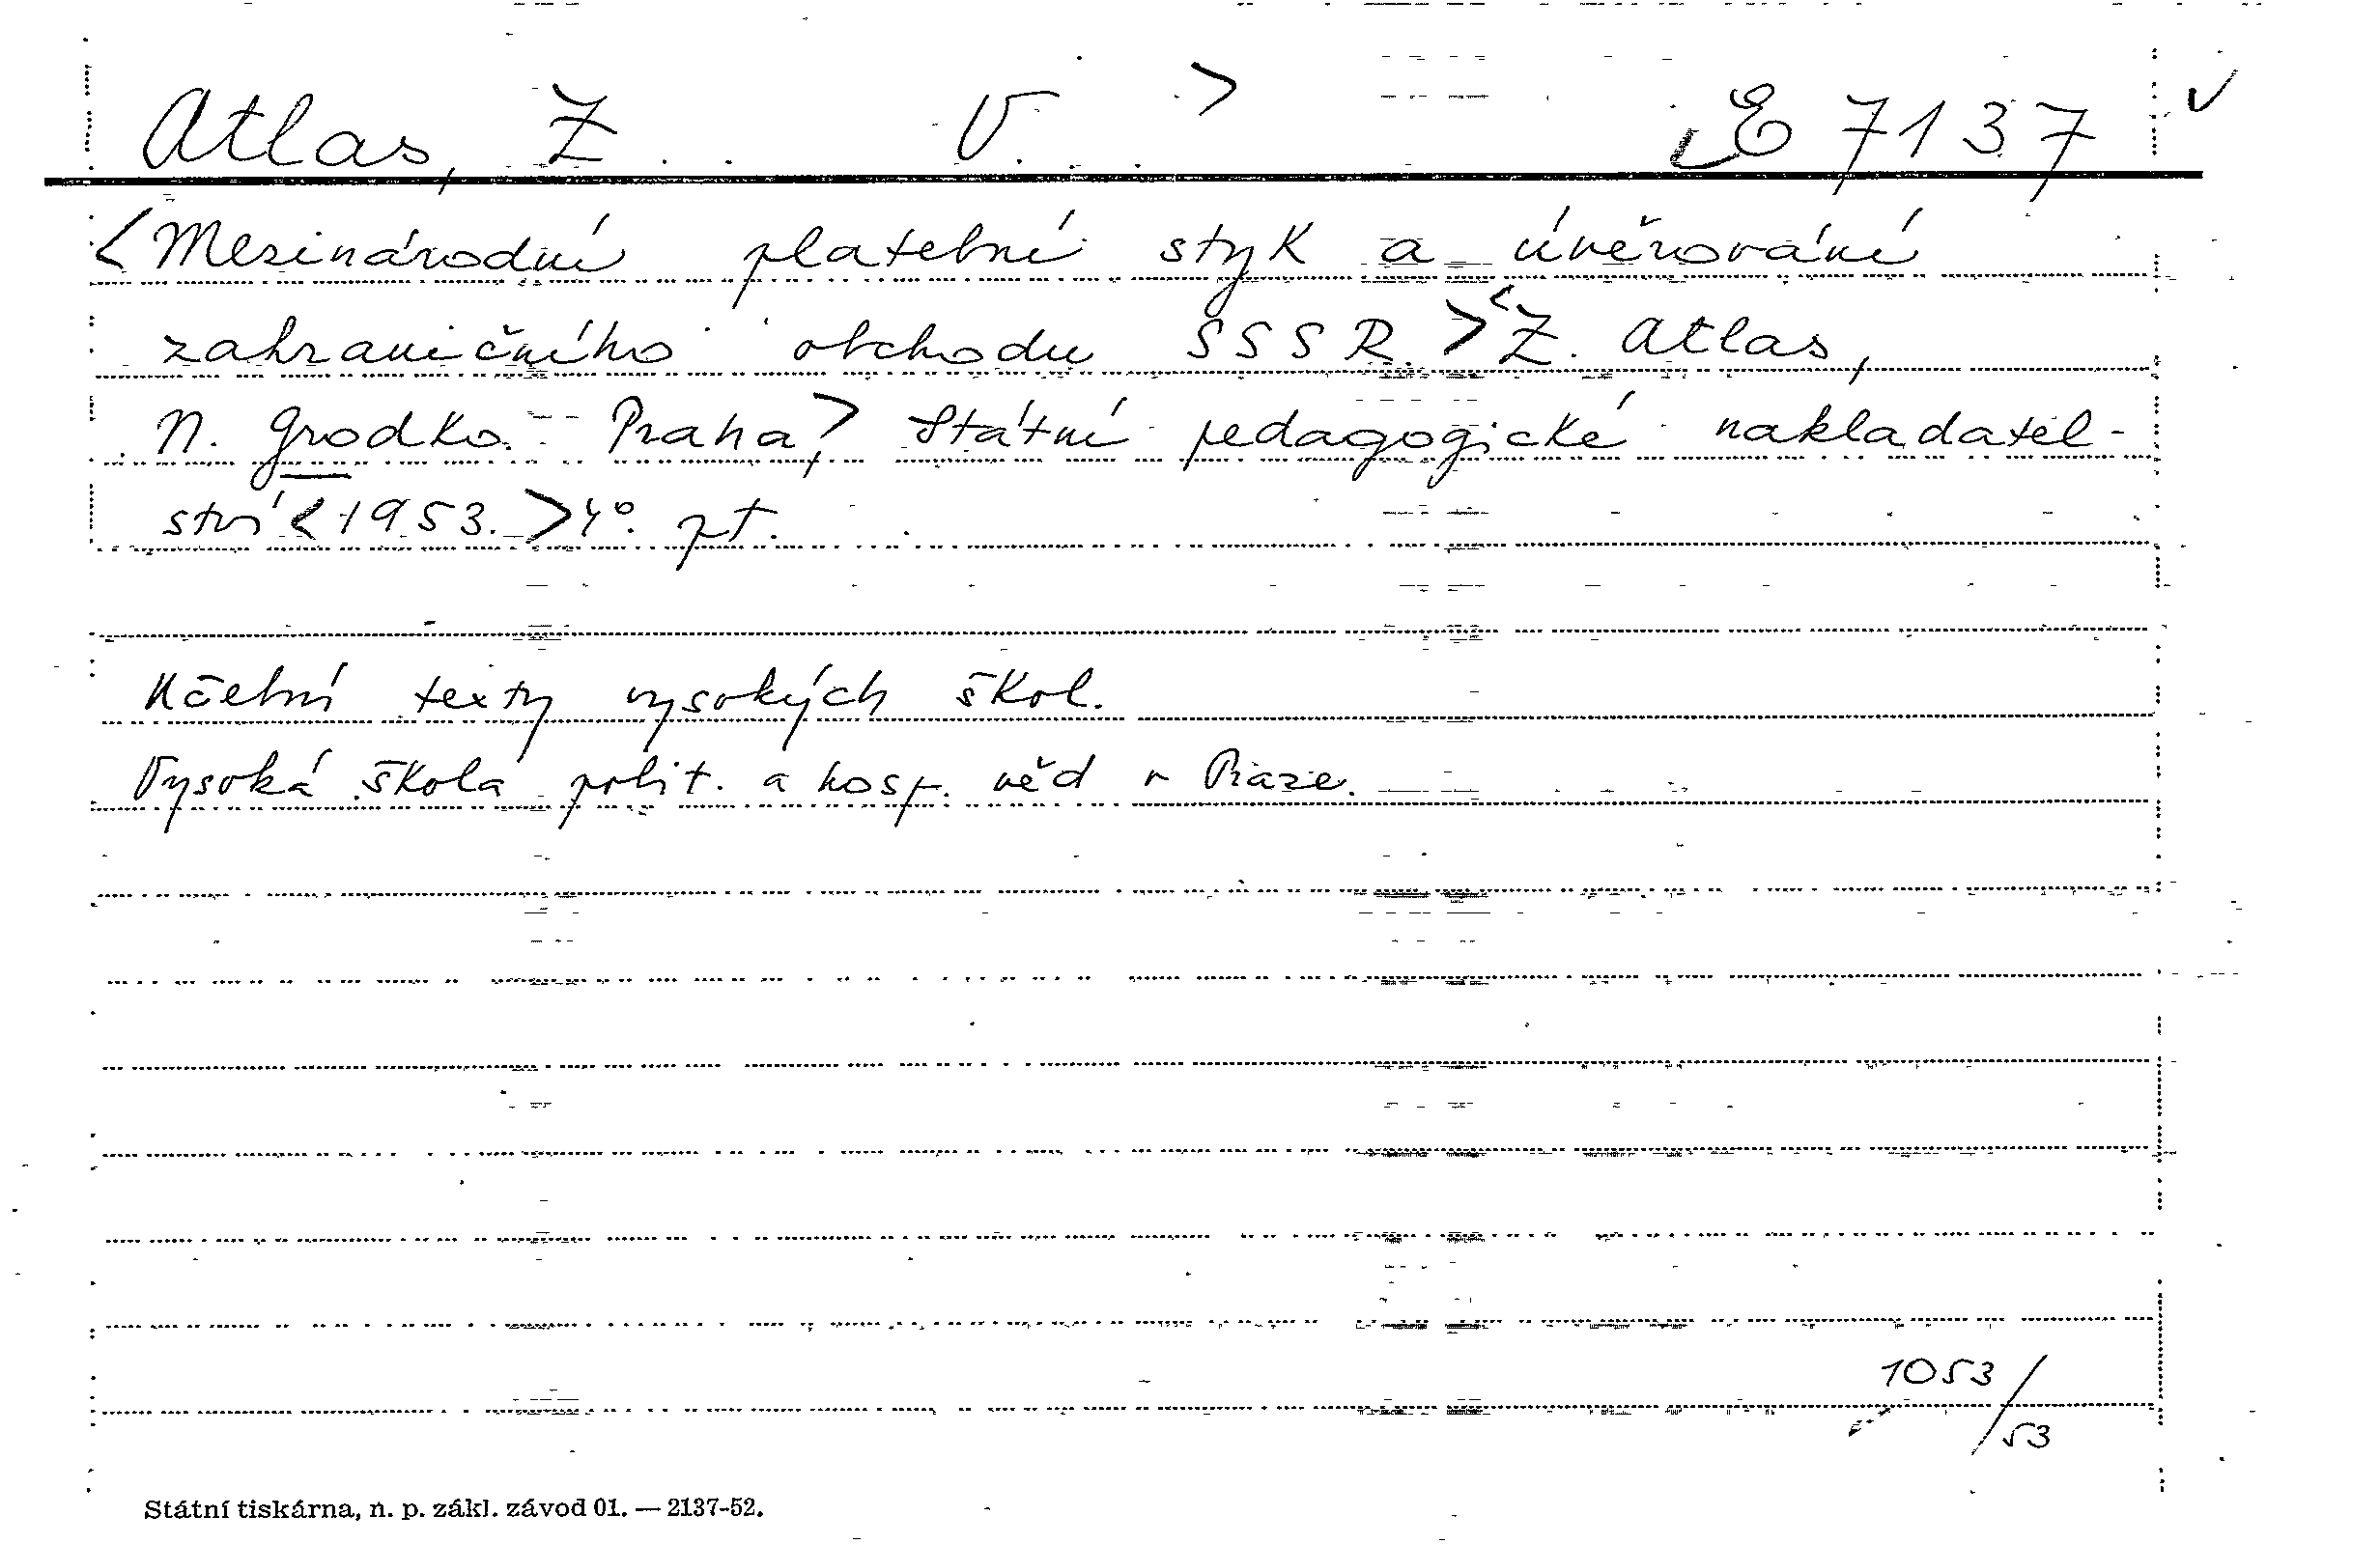 Atlas, Z. . V. . > E 7137 ✓
<Mezinárodní platební styk a úvěrování
zahraničního obchodu SSSR. > <Z. Atlas,
N. Grodko. Praha,> Státní pedagogické nakladatel-
ství <1953.> 4°. pt.
Učební texty vysokých škol.
Vysoká škola polit. a hosp. věd v Praze.
1053/53
Státní tiskárna, n. p. zákl. závod 01. — 2137-52.